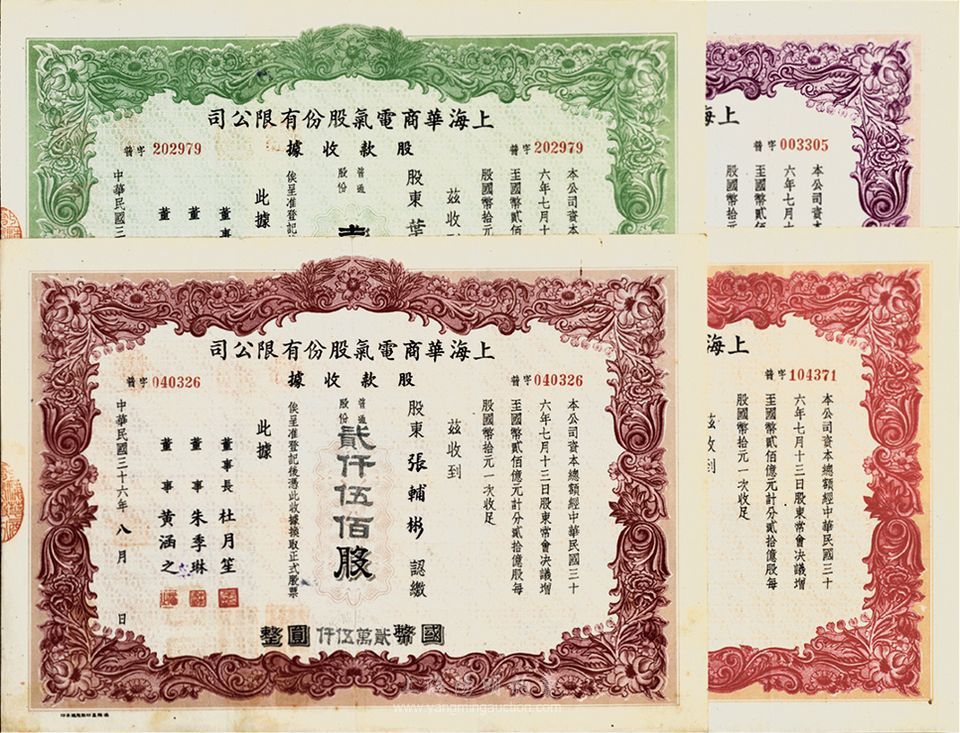 上海華商電氣股份有限公司
股款收據
普字 202979
普字 202979
本公司資本
六年七月十
至國幣貳佰
股國幣拾元
茲收
股東 葉
普通
股份
俟呈准登記
此據
董事
董
董
中華民國三
海上
普字 003305
本公司資本
六年七月十
至國幣貳
股國幣拾元
上海華商電氣股份有限公司
股款收據
普字 040326
普字 040326
本公司資本總額經中華民國三十
六年七月十三日股東常會決議增
至國幣貳佰億元計分貳拾億股每
股國幣拾元一次收足
茲收到
股東 張輔彬 認繳
普通
股份
貳仟伍佰股
國幣貳萬伍仟圓整
俟呈准登記後憑此收據換取正式股票
此據
董事長 杜月笙
董事 朱季琳
董事 黃涵之
中華民國三十六年 八月 日
上海
普字 104371
本公司資本總額經中華民國三十
六年七月十三日股東常會決議增
至國幣貳佰億元計分貳拾億股每
股國幣拾元一次收足
茲收到
www.yangmingauction.com